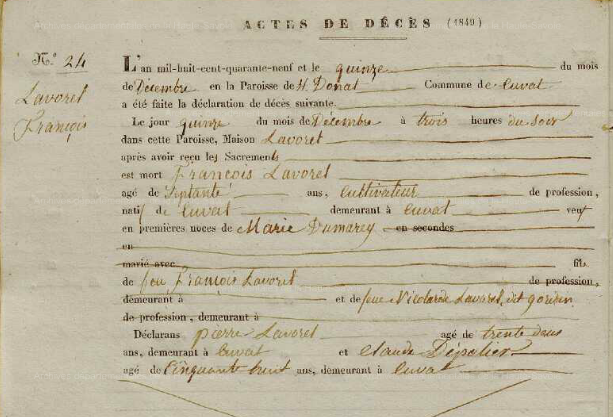 ACTES DE DÉCÈS (1849)
N.° 24
Lavorel
François
L'an mil-huit-cent-quarante-neuf et le quinze du mois
de Décembre en la Paroisse de St Donat Commune de Cuvat
a été faite la déclaration de décès suivante.
Le jour quinze du mois de Décembre à trois heures du soir
dans cette Paroisse, Maison Lavorel
après avoir reçu les Sacrements
est mort François Lavorel
agé de Septante ans, Cultivateur de profession,
natif de Cuvat demeurant à Cuvat veuf
en premières noces de Marie Dumarey en secondes
en
marié avec fil
de feu François Lavorel de profession,
demeurant à et de feue Nicolarde Lavorel, dit
de profession, demeurant à
Déclarans pierre Lavorel agé de trente deux
ans, demeurant à Cuvat et Claude
agé de Cinquante huit ans, demeurant à Cuvat